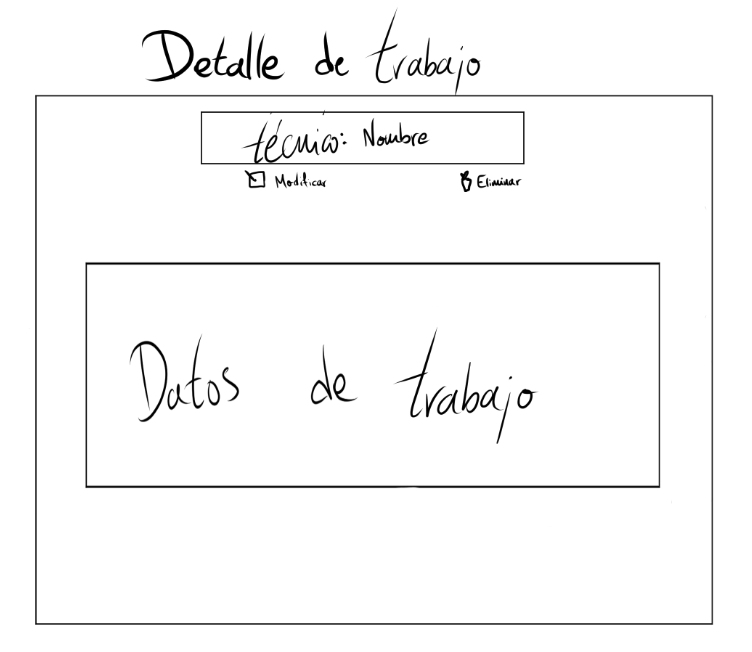 Detalle de trabajo
técnico: Nombre
Modificar
Eliminar
Datos de trabajo